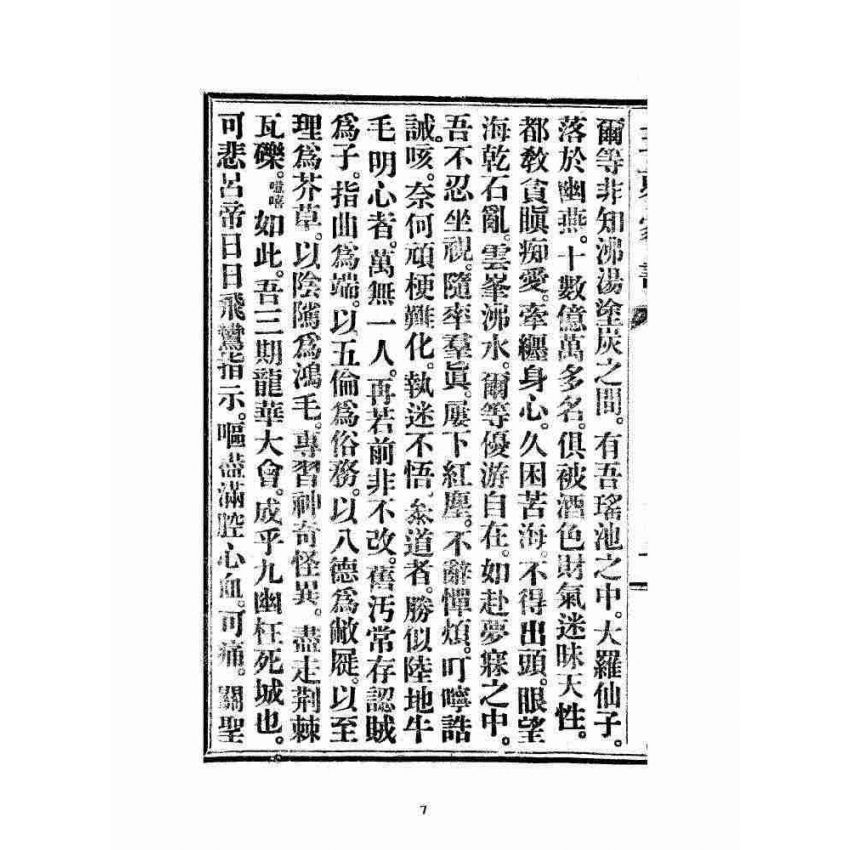 爾等非知沸湯塗炭之間。有吾瑤池之中。大羅仙子。
落於幽燕。十數億萬多名。俱被酒色財氣迷昧天性。
都教貪瞋痴愛。牽纏身心。久困苦海。不得出頭。眼望
海乾石亂。雲峯沸水。爾等優游自在。如赴夢寐之中。
吾不忍坐視。隨率羣眞。屢下紅塵。不辭憚煩。叮嚀誥
誡。咳。奈何頑梗難化。執迷不悟。叅道者。勝似陸地牛
毛。明心者。萬無一人。再若前非不改。舊汚常存。認賊
爲子。指曲爲端。以五倫爲俗務。以八德爲敝屣。以至
理爲芥草。以陰隲爲鴻毛。專習神奇怪異。盡走荆棘
瓦礫。噫嘻如此。吾三期龍華大會。成乎九幽枉死城也。
可悲呂帝日日飛鸞指示。嘔盡滿腔心血。可痛。關聖
7